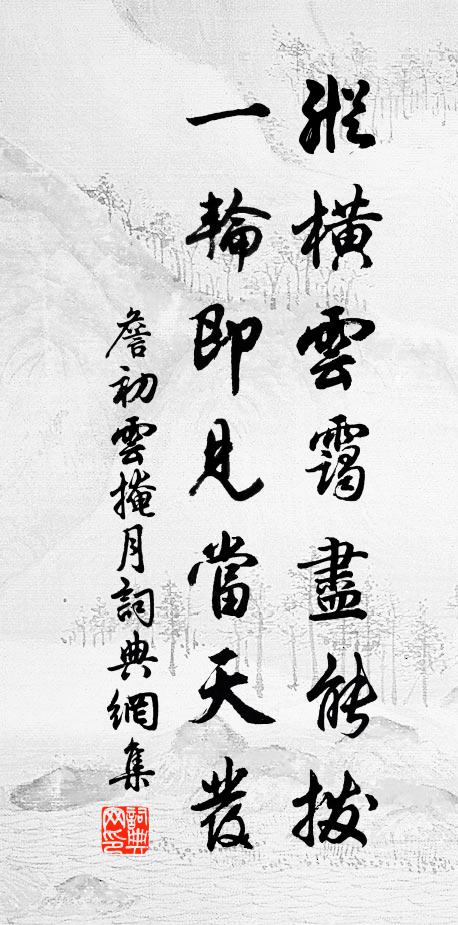 縱橫雲靄盡能撥
一輪即見當天發
詹初雲掩月詞典網集
詞典網印